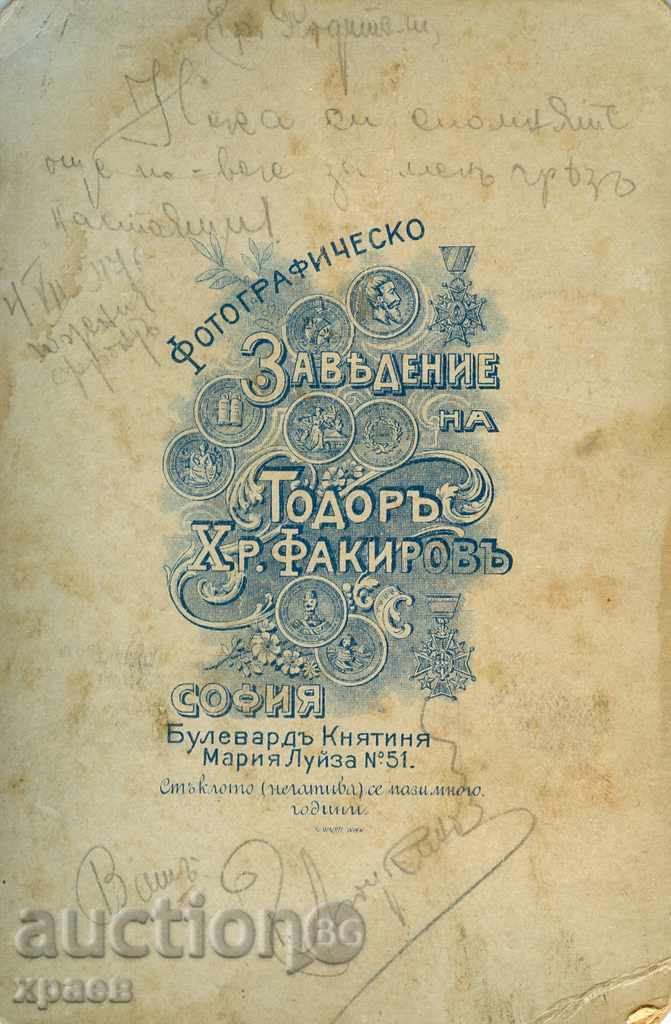 Родители,
Нека си спомнятъ
още по-вече за менъ чрѣзъ
настоящи!
Фотографическо
Заведение
на
Тодоръ
Хр. Факировъ
София
Булевардъ Княтиня
Мария Луйза №51.
Стъклото (негатива) се пази много
години.
Вашъ
auctionBG
храев